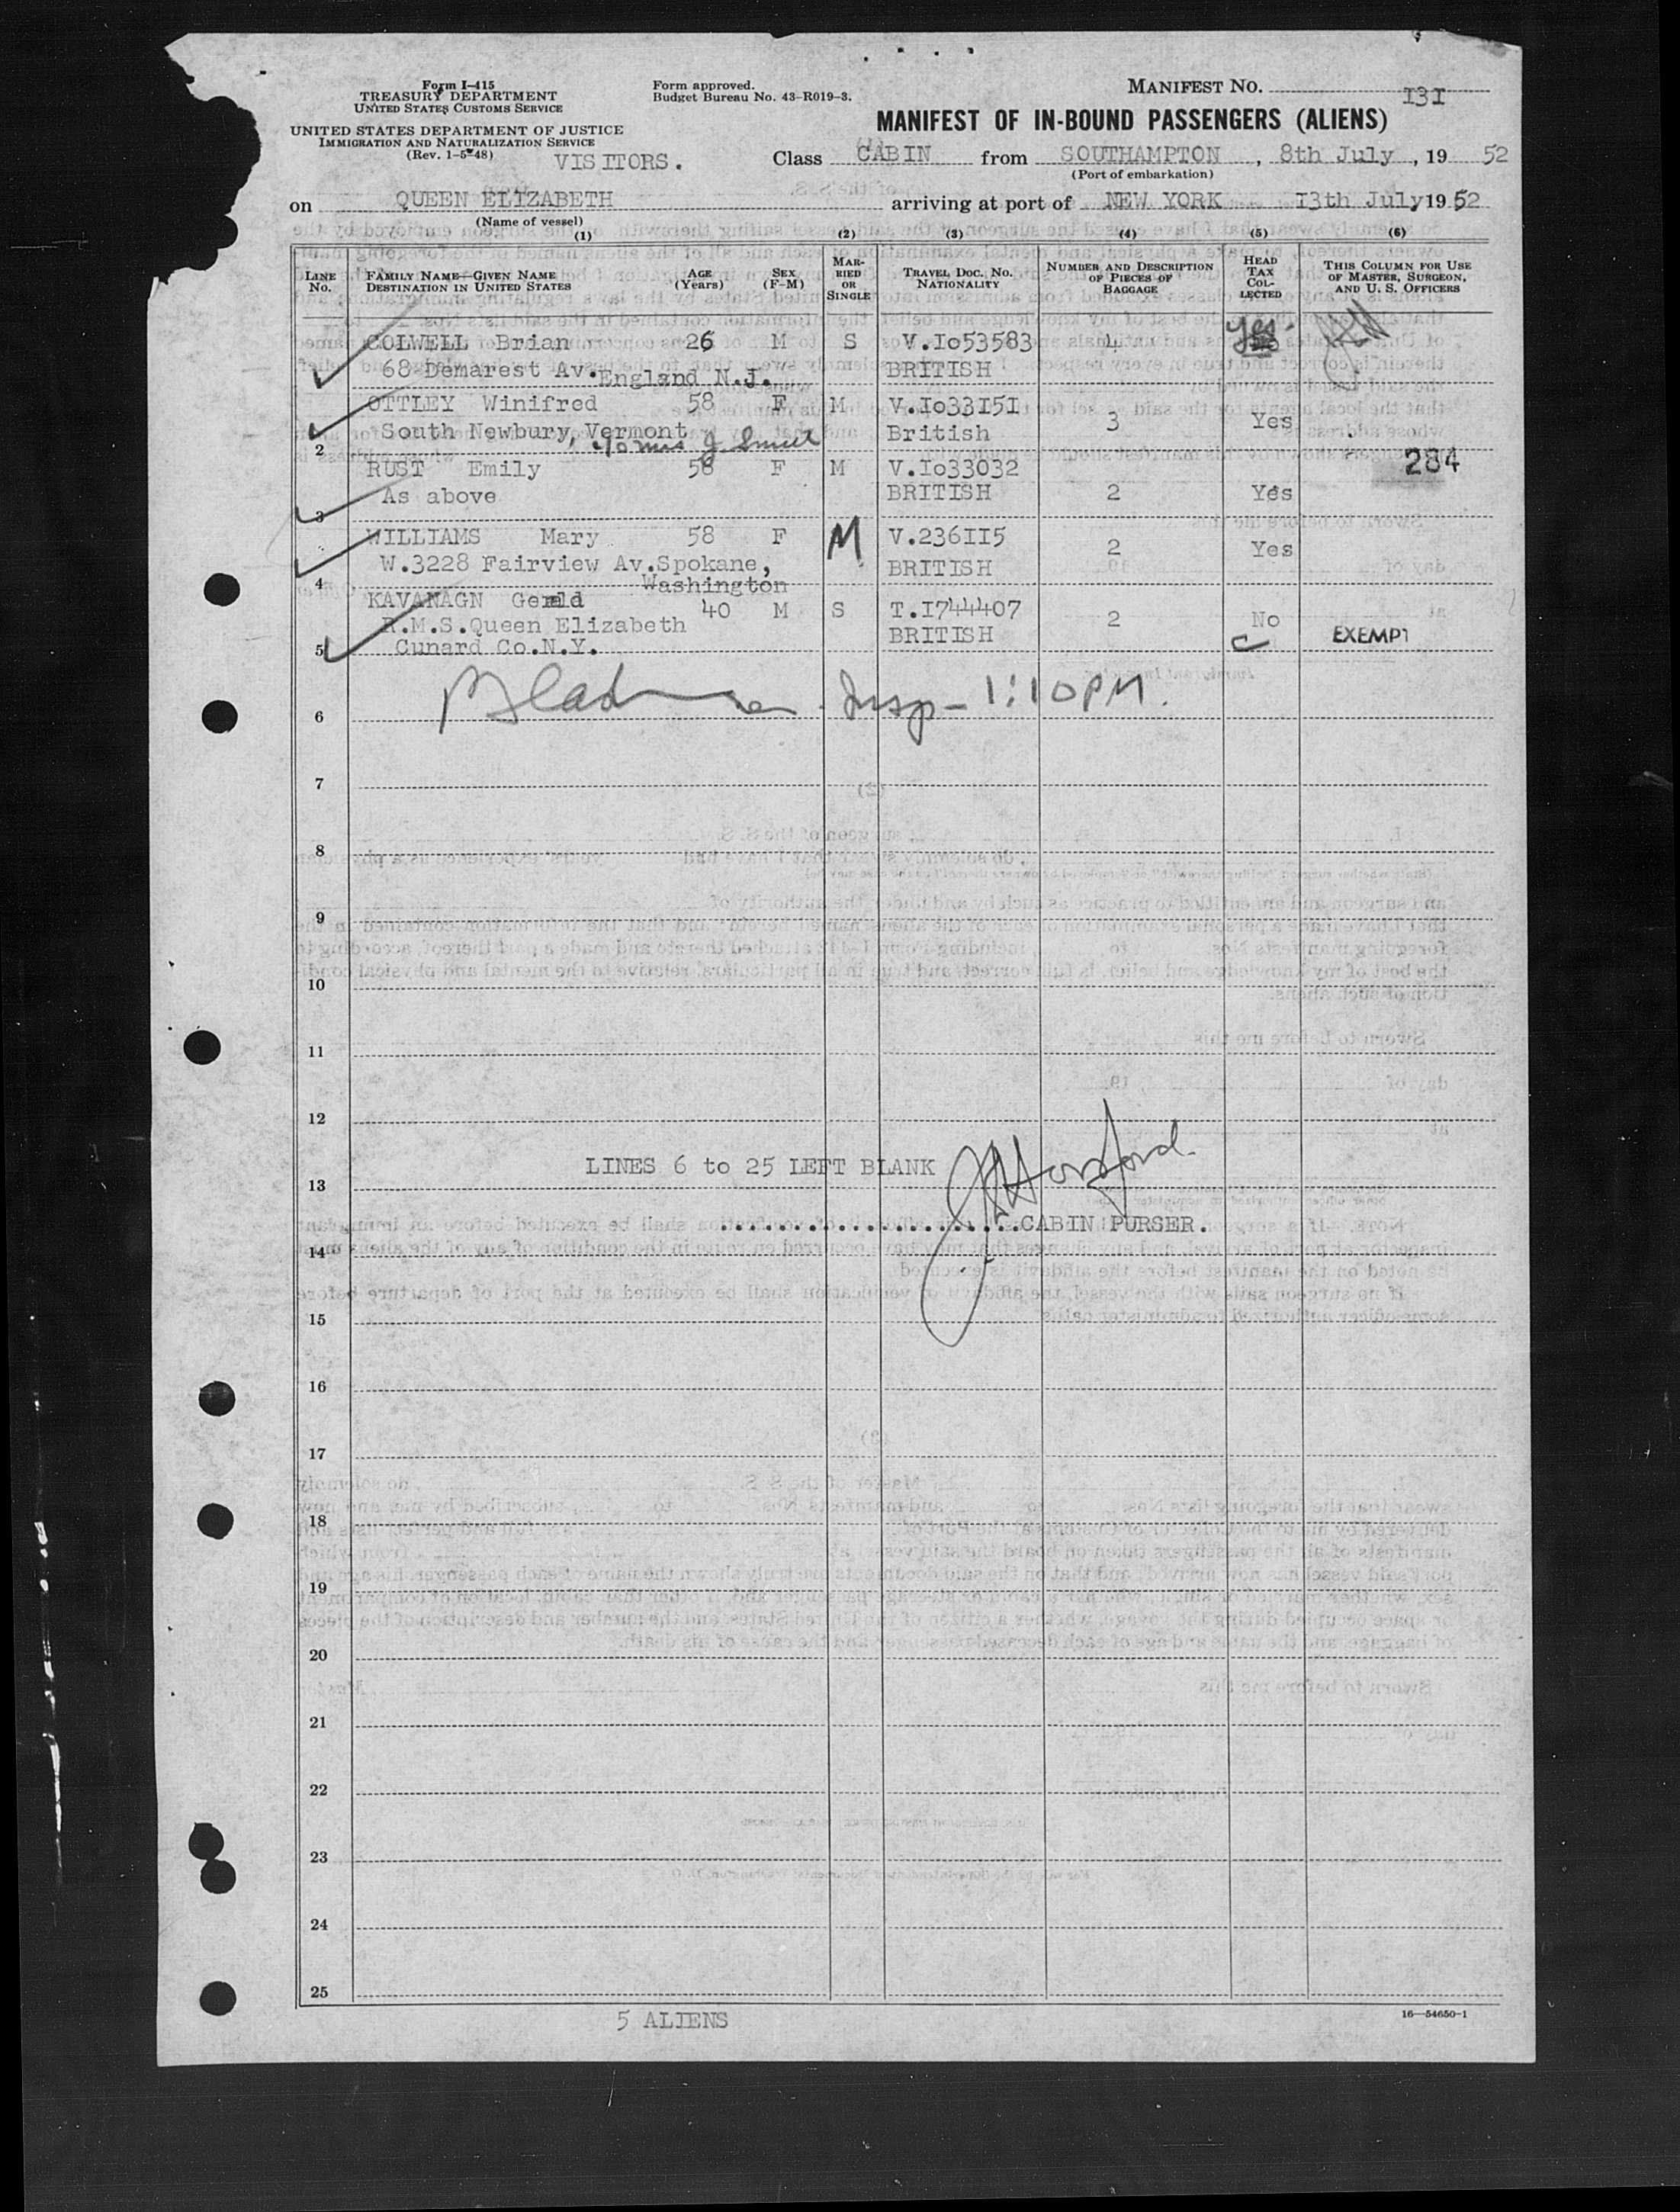 Form I-415
TREASURY DEPARTMENT
UNITED STATES CUSTOMS SERVICE
UNITED STATES DEPARTMENT OF JUSTICE
IMMIGRATION AND NATURALIZATION SERVICE
(Rev. 1-5-48)
VISITORS.
Form approved.
Budget Bureau No. 43-R019-3.
MANIFEST NO. 131
MANIFEST OF IN-BOUND PASSENGERS (ALIENS)
Class CABIN from SOUTHAMPTON, 8th July, 19 52
(Port of embarkation)
on QUEEN ELIZABETH arriving at port of NEW YORK 13th July 1952
(Name of vessel)
(1) (2) (3) (4) (5) (6)
LINE NO. FAMILY NAME—GIVEN NAME DESTINATION IN UNITED STATES AGE (Years) SEX (F-M) MARRIED OR SINGLE TRAVEL DOC. NO. NATIONALITY NUMBER AND DESCRIPTION OF PIECES OF BAGGAGE HEAD TAX COLLECTED THIS COLUMN FOR USE OF MASTER, SURGEON, AND U. S. OFFICERS
COLWELL Brian 26 M S V.Io53583 4 Yes
68 Demarest Av. England N.J. BRITISH
OTTLEY Winifred 58 F M V.Io33I5I 3 Yes
South Newbury, Vermont British
2 c/o Mrs J.
RUST Emily 58 F M V.Io33032 284
As above BRITISH 2 Yes
3
WILLIAMS Mary 58 F M V.236II5 2 Yes
W.3228 Fairview Av.Spokane, BRITISH
4 Washington
KAVANAGN Gerald 40 M S T.I744407 2 No
R.M.S.Queen Elizabeth BRITISH C EXEMPT
5 Cunard Co.N.Y.
Insp- 1:10 PM.
6
7
8
9
10
11
12
LINES 6 to 25 LEFT BLANK
13
CABIN PURSER.
14
15
16
17
18
19
20
21
22
23
24
25
5 ALIENS
16—54650-1